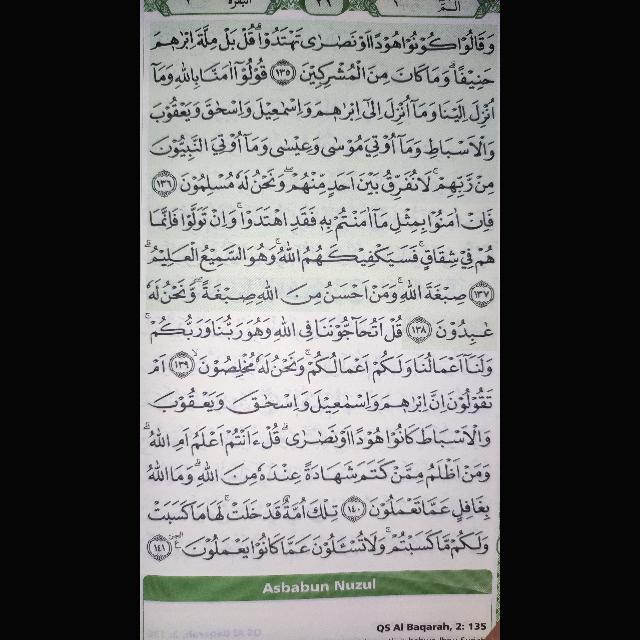 الۤمّۤ ١
٢١
البقرة ٢
وَقَالُوْا كُوْنُوْا هُوْدًا اَوْ نَصٰرٰى تَهْتَدُوْاۗ قُلْ بَلْ مِلَّةَ اِبْرٰهٖمَ
حَنِيْفًاۗ وَمَا كَانَ مِنَ الْمُشْرِكِيْنَ ١٣٥ قُوْلُوْٓا اٰمَنَّا بِاللّٰهِ وَمَآ
اُنْزِلَ اِلَيْنَا وَمَآ اُنْزِلَ اِلٰٓى اِبْرٰهٖمَ وَاِسْمٰعِيْلَ وَاِسْحٰقَ وَيَعْقُوْبَ
وَالْاَسْبَاطِ وَمَآ اُوْتِيَ مُوْسٰى وَعِيْسٰى وَمَآ اُوْتِيَ النَّبِيُّوْنَ
مِنْ رَّبِّهِمْۚ لَا نُفَرِّقُ بَيْنَ اَحَدٍ مِّنْهُمْۖ وَنَحْنُ لَهٗ مُسْلِمُوْنَ ١٣٦
فَاِنْ اٰمَنُوْا بِمِثْلِ مَآ اٰمَنْتُمْ بِهٖ فَقَدِ اهْتَدَوْاۚ وَاِنْ تَوَلَّوْا فَاِنَّمَا
هُمْ فِيْ شِقَاقٍۚ فَسَيَكْفِيْكَهُمُ اللّٰهُۚ وَهُوَ السَّمِيْعُ الْعَلِيْمُۗ
١٣٧ صِبْغَةَ اللّٰهِۚ وَمَنْ اَحْسَنُ مِنَ اللّٰهِ صِبْغَةًۖ وَّنَحْنُ لَهٗ
عٰبِدُوْنَ ١٣٨ قُلْ اَتُحَاۤجُّوْنَنَا فِى اللّٰهِ وَهُوَ رَبُّنَا وَرَبُّكُمْۚ
وَلَنَآ اَعْمَالُنَا وَلَكُمْ اَعْمَالُكُمْۚ وَنَحْنُ لَهٗ مُخْلِصُوْنَ ١٣٩ اَمْ
تَقُوْلُوْنَ اِنَّ اِبْرٰهٖمَ وَاِسْمٰعِيْلَ وَاِسْحٰقَ وَيَعْقُوْبَ
وَالْاَسْبَاطَ كَانُوْا هُوْدًا اَوْ نَصٰرٰىۗ قُلْ ءَاَنْتُمْ اَعْلَمُ اَمِ اللّٰهُۗ
وَمَنْ اَظْلَمُ مِمَّنْ كَتَمَ شَهَادَةً عِنْدَهٗ مِنَ اللّٰهِۗ وَمَا اللّٰهُ
بِغَافِلٍ عَمَّا تَعْمَلُوْنَ ١٤٠ تِلْكَ اُمَّةٌ قَدْ خَلَتْۚ لَهَا مَا كَسَبَتْ
وَلَكُمْ مَّا كَسَبْتُمْۚ وَلَا تُسْـَٔلُوْنَ عَمَّا كَانُوْا يَعْمَلُوْنَ ١٤١
Asbabun Nuzul
QS Al Baqarah, 2: 135